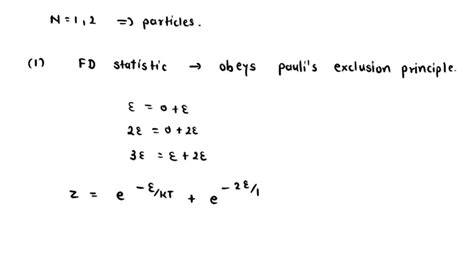 N = 1, 2 => particles.
(1) FD statistic → obeys pauli's exclusion principle.
ε = 0 + ε
2ε = 0 + 2ε
3ε = ε + 2ε
z = e^{-ε/KT} + e^{-2ε/1